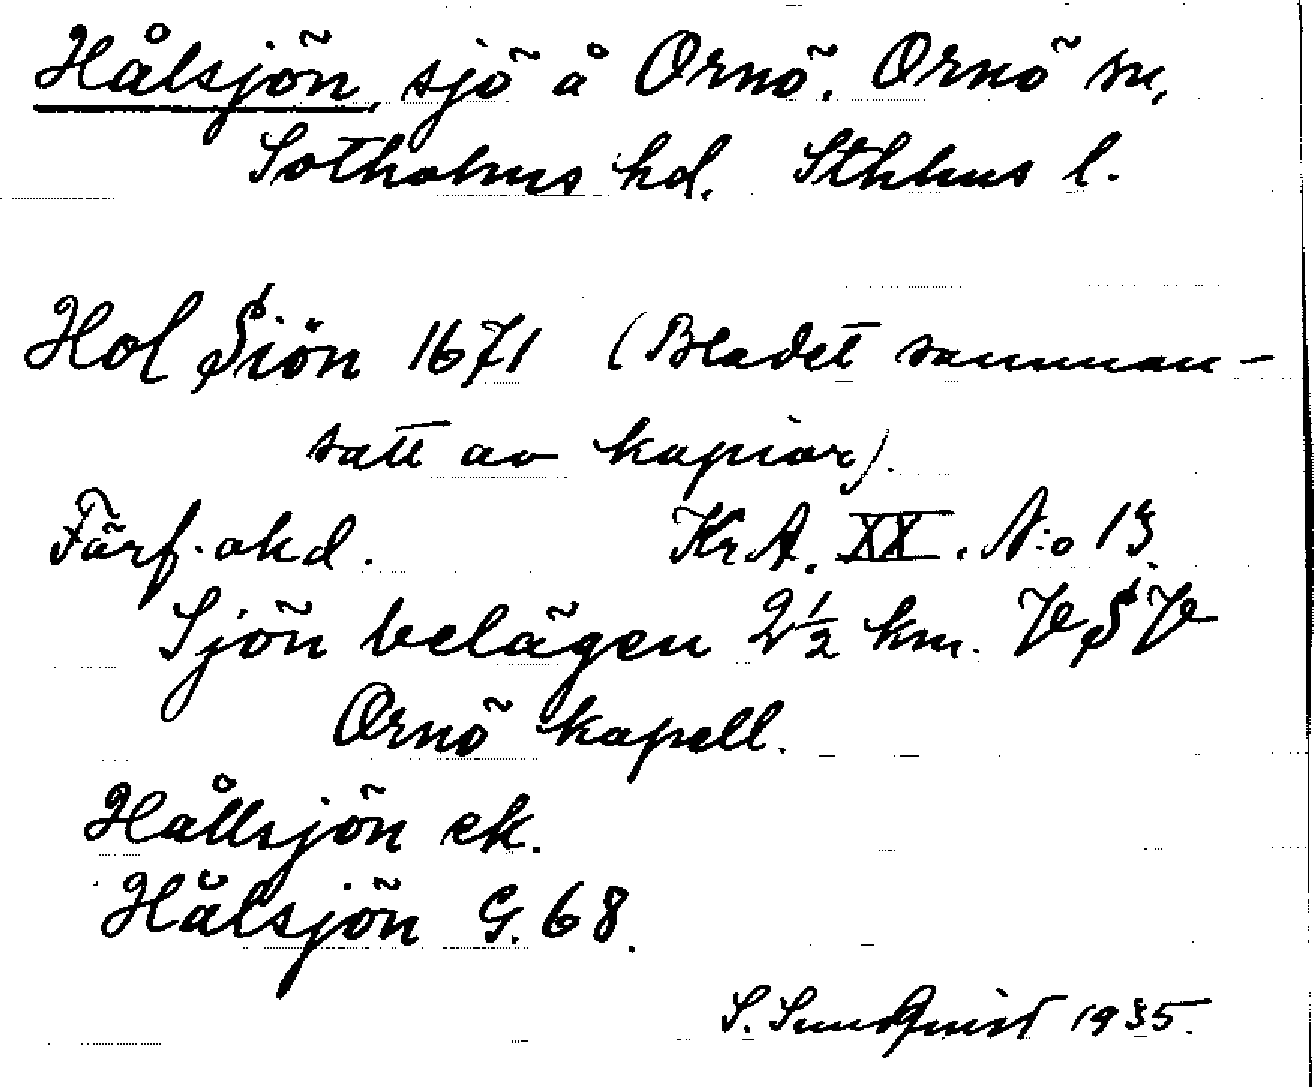 Hålsjön, sjö å Ornö. Ornö sn,
Sotholms hd. Sthlms l.
Hol Siön 1671 (Bladet samman-
satt av kopior).
Förf. okd. KrA. XX. N:o 13
Sjön belägen 2½ km. VSV
Ornö kapell.
Hållsjön ek.
Hålsjön G. 68.
S. Sundqvist 1935.